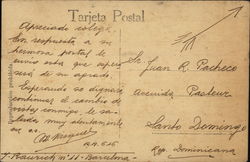 Tarjeta Postal
Apreciado colega:
En respuesta a su
hermosa postal le
envio esta que espero
será de su agrado.
Esperando se dignará
continuar el cambio de
vistas conmigo le sa-
luda muy atentamente
Sr.
Juan R. Pacheco
Avenida Pasteur
Santo Domingo
Rep. Dominicana
Barcelona